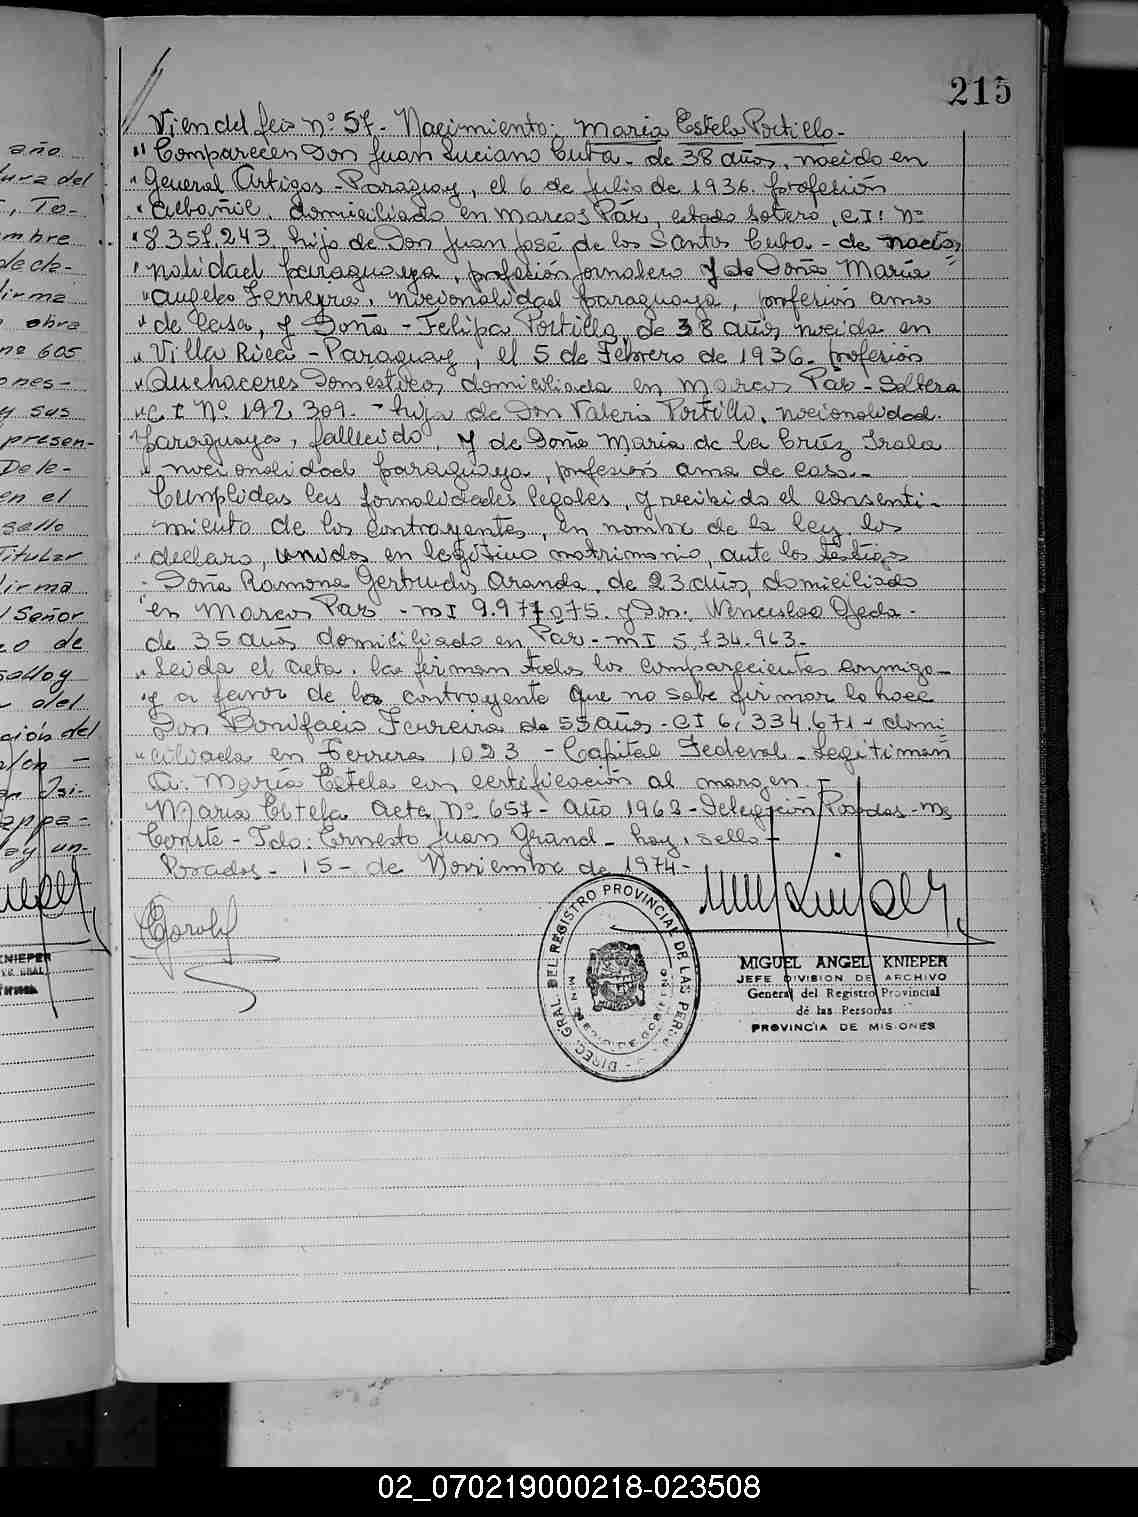 215
Vien del feio nº 57- Nacimiento: María Estela Portillo-
" Comparecen Don Juan Luciano Cuba- de 38 años, nacido en
" General Artigas - Paraguay, el 6 de Julio de 1936. profesión
" albañil. domiciliado en Marcos Páz, estado soltero, C.I: Nº
" 8.357.243. hijo de Don Juan José de los Santos Cuba - de nacio=
" nalidad paraguaya, profesión jornalero y de Doña María
" Angela Ferreyra, nacionalidad paraguaya, profesión ama
" de Casa, y Doña - Felipa Portillo, de 38 años, nacida en
" Villa Rica - Paraguay, el 5 de Febrero de 1936- profesión
" Quehaceres Domésticos, domiciliada en Marcos Páz - Soltera
" C.I Nº 192.309. - hija de Don Valerio Portillo, nacionalidad
paraguaya, fallecido, y de Doña María de la Crúz Irala
" nacionalidad paraguaya, profesión ama de casa.-
Cumplidas las formalidades legales, y recibido el consenti-
miento de los contrayentes, en nombre de la ley los
" declaro, unidos en legítimo matrimonio, ante los testigos
Doña Ramona Gertrudis Aranda, de 23 años, domiciliado
" en Marcos Paz - M I 9.977.075. y Don: Wenceslao Ojeda-
de 35 años domiciliado en Páz - M I 5.734.963.-
" Leída el acta. la firman todos los comparecientes conmigo-
" y a favor de la contrayente que no sabe firmar lo hace
Don Bonifacio Ferreira de 55 años - C I 6.334.671 - domi=
" ciliado en Ferrera 1023 - Capital Federal - Legitiman
A: María Estela con certificación al margen.-
María Estela Acta Nº 657- Año 1963 - Delegación Posadas - Ms
Conste - Fdo: Ernesto Juan Grand - hay, sello -
Posadas - 15 - de Noviembre de 1974-
DIREC. GRAL. DEL REGISTRO PROVINCIAL DE LAS PERSO
MIGUEL ANGEL KNIEPER
JEFE DIVISION DE ARCHIVO
General del Registro Provincial
de las Personas
PROVINCIA DE MISIONES
año
tura del
mbre
de cla-
firma
obra
nº 605
ones-
y sus
presen-
Dele-
en el
sello
Titular
firma
l Señor
o de
del
ción del
KNIEPER
02_070219000218-023508